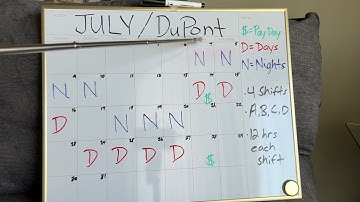 JULY/DuPont
$=Pay Day
D=Days
N=Nights
N N
9
N N D $ D
16
D N N N
D D D D $
30 31
· 4 Shifts
· A, B, C, D
· 12 hrs
each
shift